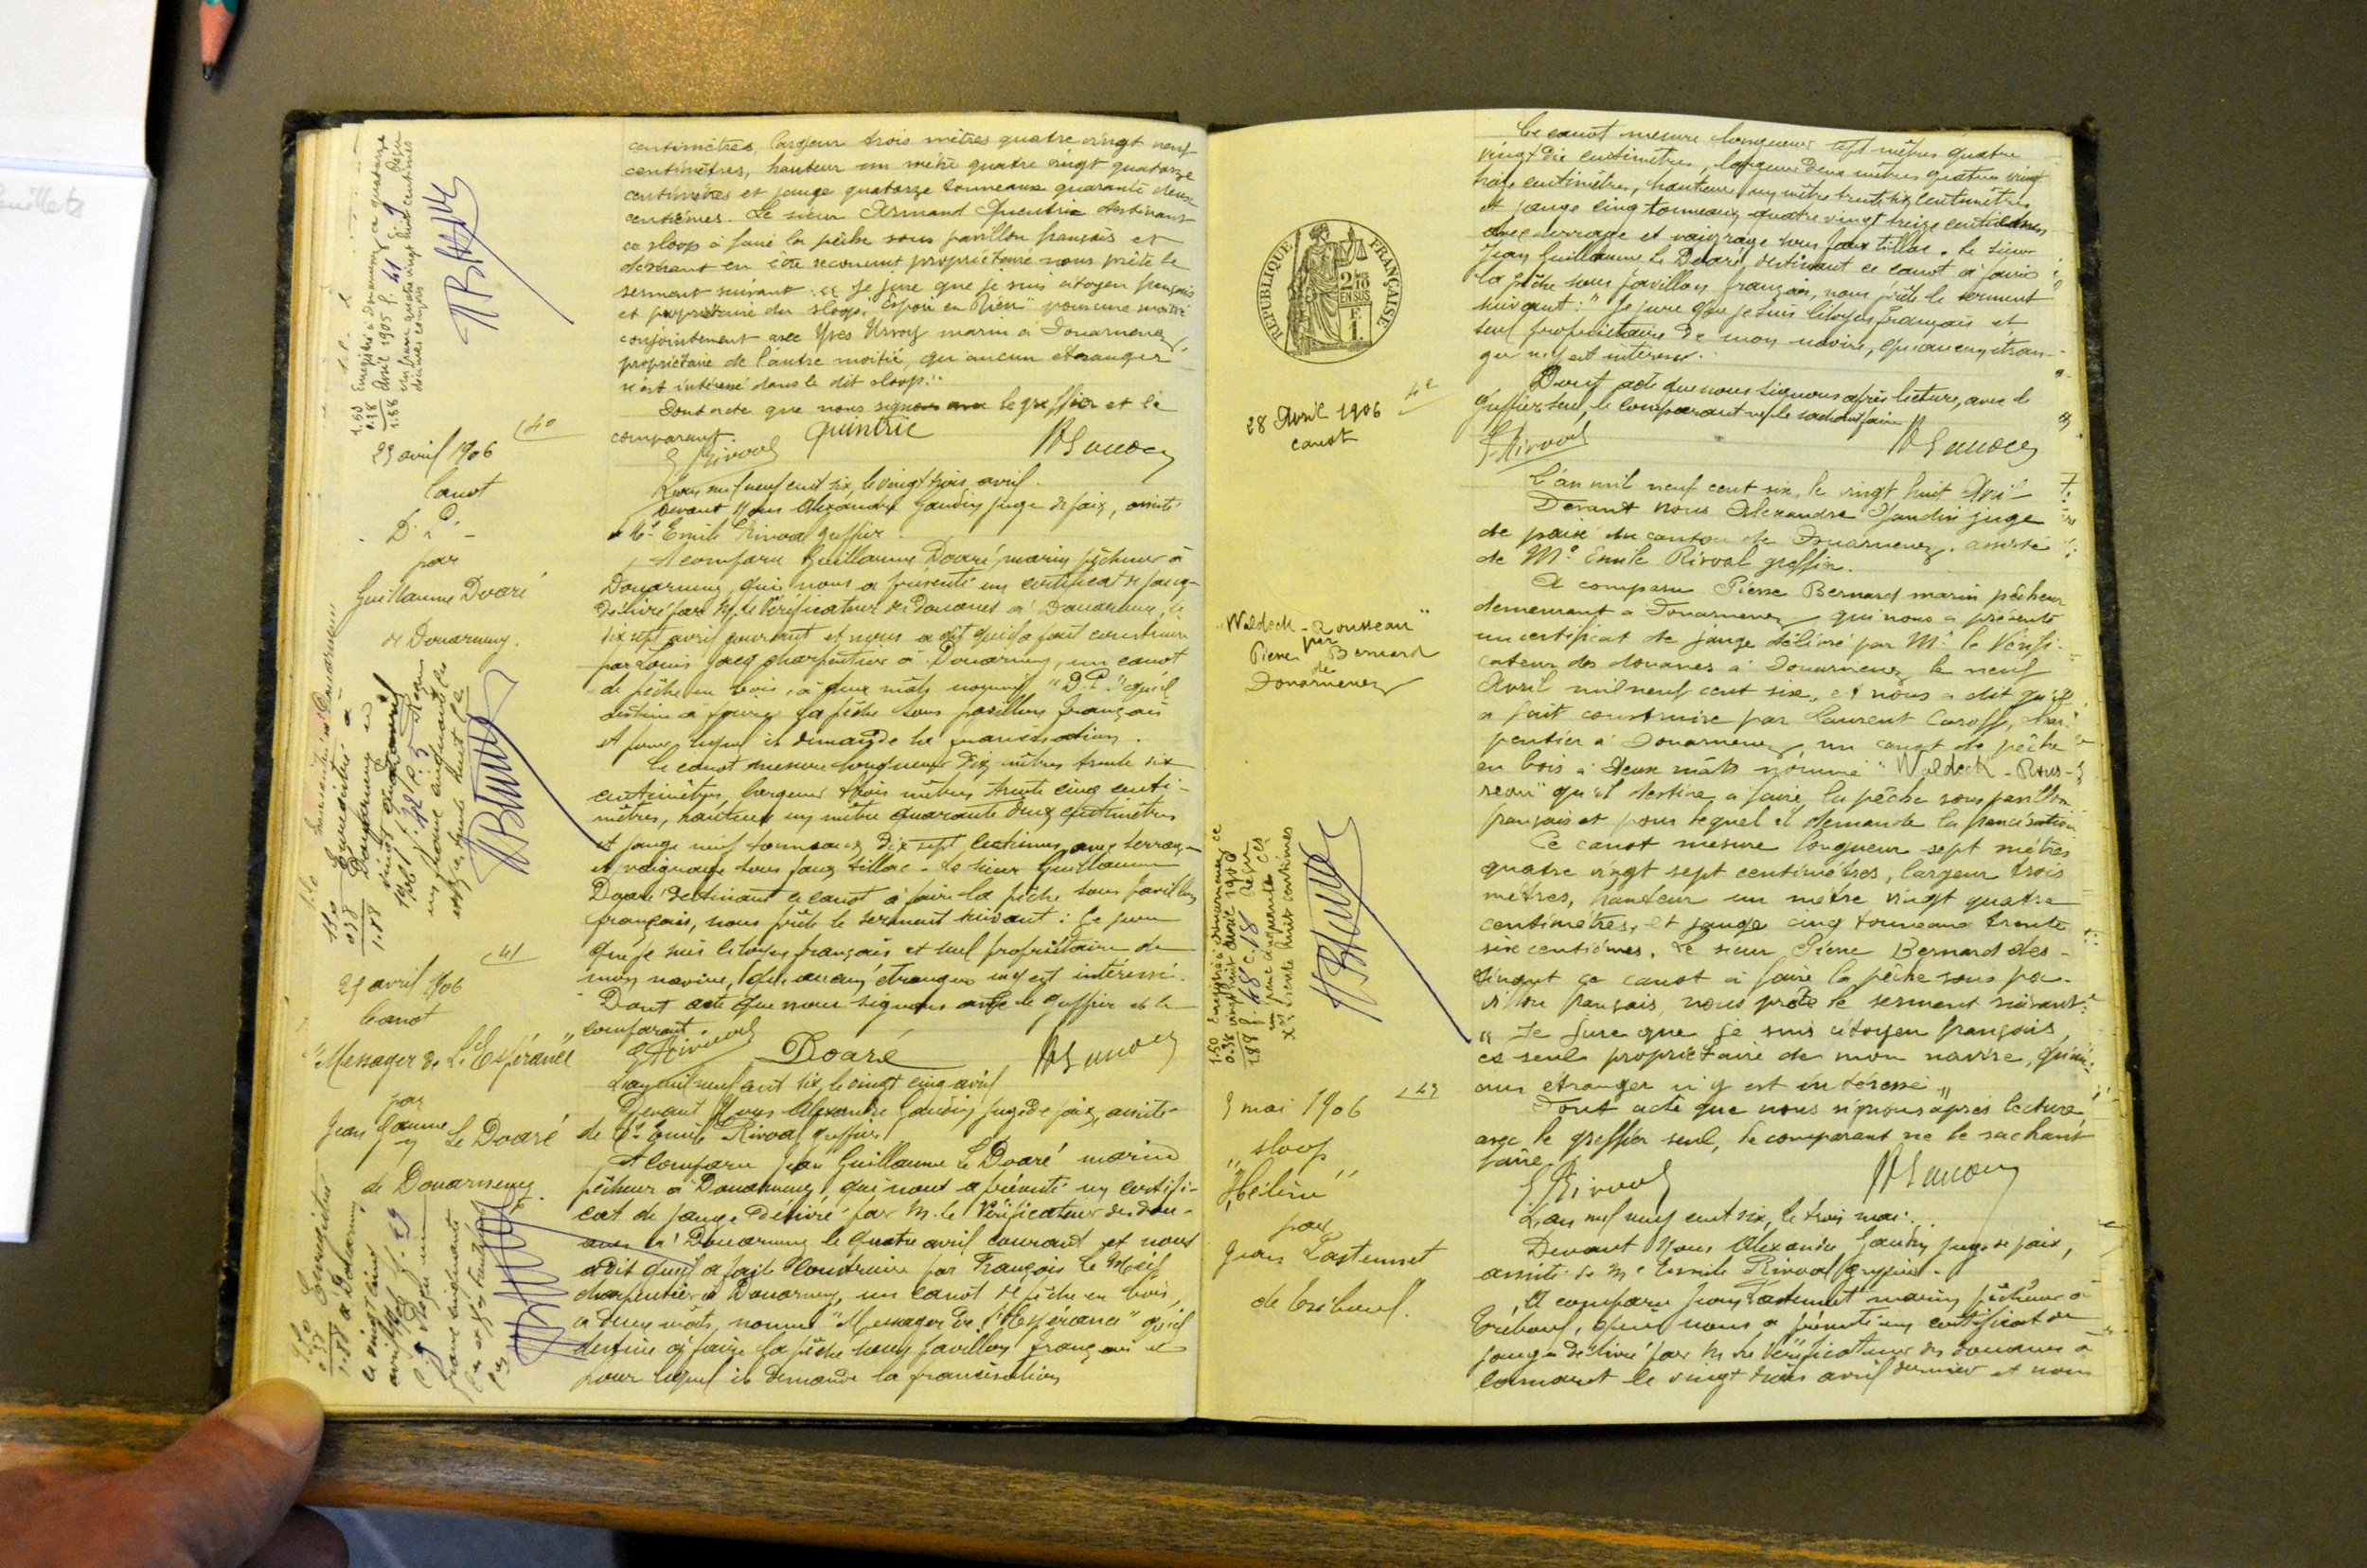 centimètres, largeur trois mètres quatre vingt neuf
centimètres, hauteur un mètre quatre vingt quatorze
centimètres et jauge quatorze tonneaux quarante deux
centièmes. Le sieur Armand Quentric destinant
ce sloop à faire la pêche sous pavillon français et
désirant en être reconnu propriétaire nous prête le
serment suivant : "Je jure que je suis citoyen français
et propriétaire du sloop "Espoir en Dieu" pour une moitié
conjointement avec Yves Urvoy marin à Douarnenez,
propriétaire de l'autre moitié, qu'aucun étranger
n'est intéressé dans le dit sloop."
Dont acte que nous signons avec le greffier et le
comparant.
Quintric
40
23 avril 1906
Canot
D. P.
par
Guillaume Doaré
de Douarnenez.
L'an mil neuf cent six, le vingt trois avril.
Devant Nous Alexandre Gaudin juge de paix, assisté
de Me Emile Rivoal greffier.
A comparu Guillaume Doaré marin pêcheur à
Douarnenez, qui nous a présenté un certificat de jauge
délivré par M. le Vérificateur des Douanes à Douarnenez, le
dix sept avril courant et nous a dit qu'il a fait construire
par Louis Jacq charpentier à Douarnenez, un canot
de pêche en bois, à deux mâts nommé "D. P." qu'il
destine à faire la pêche sous pavillon français
et pour lequel il demande la francisation.
Ce canot mesure longueur dix mètres trente six
centimètres, largeur trois mètres trente cinq centi-
mètres, hauteur un mètre quarante deux centimètres
et jauge neuf tonneaux dix sept centièmes avec serrage
et vaigrage sous faux tillac. Le sieur Guillaume
Doaré destinant ce canot à faire la pêche sous pavillon
français, nous prête le serment suivant : Je jure
que je suis citoyen français et seul propriétaire de
mon navire, qu'aucun étranger n'y est intéressé.
Dont acte que nous signons avec le greffier et le
comparant.
Doaré
41
25 avril 1906
Canot
"Messager de L'Espérance"
par
Jean Guillaume Le Doaré
de Douarnenez.
L'an mil neuf cent six, le vingt cinq avril
Devant Nous Alexandre Gaudin juge de paix, assisté
de Me Emile Rivoal greffier
A comparu Jean Guillaume Le Doaré marin
pêcheur à Douarnenez, qui nous a présenté un certifi-
cat de jauge délivré par M. le Vérificateur des Dou-
anes à Douarnenez le quatre avril courant et nous
a dit qu'il a fait construire par François Le
charpentier à Douarnenez, un canot de pêche en bois,
à deux mâts, nommé "Messager de l'Espérance" qu'il
destine à faire la pêche sous pavillon français et
pour lequel il demande la francisation
REPUBLIQUE FRANÇAISE
2/10
EN SUS
Ce canot mesure longueur sept mètres quatre
vingt dix centimètres, largeur deux mètres quatre vingt
centimètres, hauteur un mètre trente six centimètres
et jauge cinq tonneaux quatre vingt treize centièmes
avec serrage et vaigrage sous faux tillac. Le sieur
Jean Guillaume Le Doaré, destinant ce canot à faire
la pêche sous pavillon français, nous prête le serment
suivant : "Je jure que je suis citoyen français et
seul propriétaire de mon navire, qu'aucun étran-
ger n'y est intéressé.
Dont acte que nous signons après lecture, avec le
greffier seul, le comparant ne le sachant faire
42
28 Avril 1906
canot
"Waldeck-Rousseau"
par
Pierre Bernard
de
Douarnenez
L'an mil neuf cent six, le vingt huit Avril
Devant nous Alexandre Gaudin juge
de paix du canton de Douarnenez, assisté
de Me Emile Rivoal greffier.
A comparu Pierre Bernard marin pêcheur
demeurant à Douarnenez qui nous a présenté
un certificat de jauge délivré par Mr le Vérifi-
cateur des douanes à Douarnenez le neuf
Avril mil neuf cent six, et nous a dit qu'il
a fait construire par Laurent Caroff, char-
pentier à Douarnenez un canot de pêche
en bois à deux mâts nommé "Waldeck-Rous-
seau" qu'il destine à faire la pêche sous pavillon
français et pour lequel il demande la francisation
Ce canot mesure longueur sept mètres
quatre vingt sept centimètres, largeur trois
mètres, hauteur un mètre vingt quatre
centimètres, et jauge cinq tonneaux trente
six centièmes. Le sieur Pierre Bernard des-
tinant ce canot à faire la pêche sous pa-
villon français, nous prête le serment suivant :
"Je jure que je suis citoyen français,
et seul propriétaire de mon navire, qu'au-
cun étranger n'y est intéressé"
Dont acte que nous signons après lecture
avec le greffier seul, le comparant ne le sachant
faire.
43
3 mai 1906
sloop
"Hélène"
par
Jean Lastennet
de Tréboul.
L'an mil neuf cent six, le trois mai.
Devant Nous Alexandre Gaudin juge de paix,
assisté de Me Emile Rivoal greffier.
A comparu Jean Lastennet marin pêcheur à
Tréboul, qui nous a présenté un certificat de
jauge délivré par M. le Vérificateur des douanes à
Camaret le vingt trois avril dernier et nous